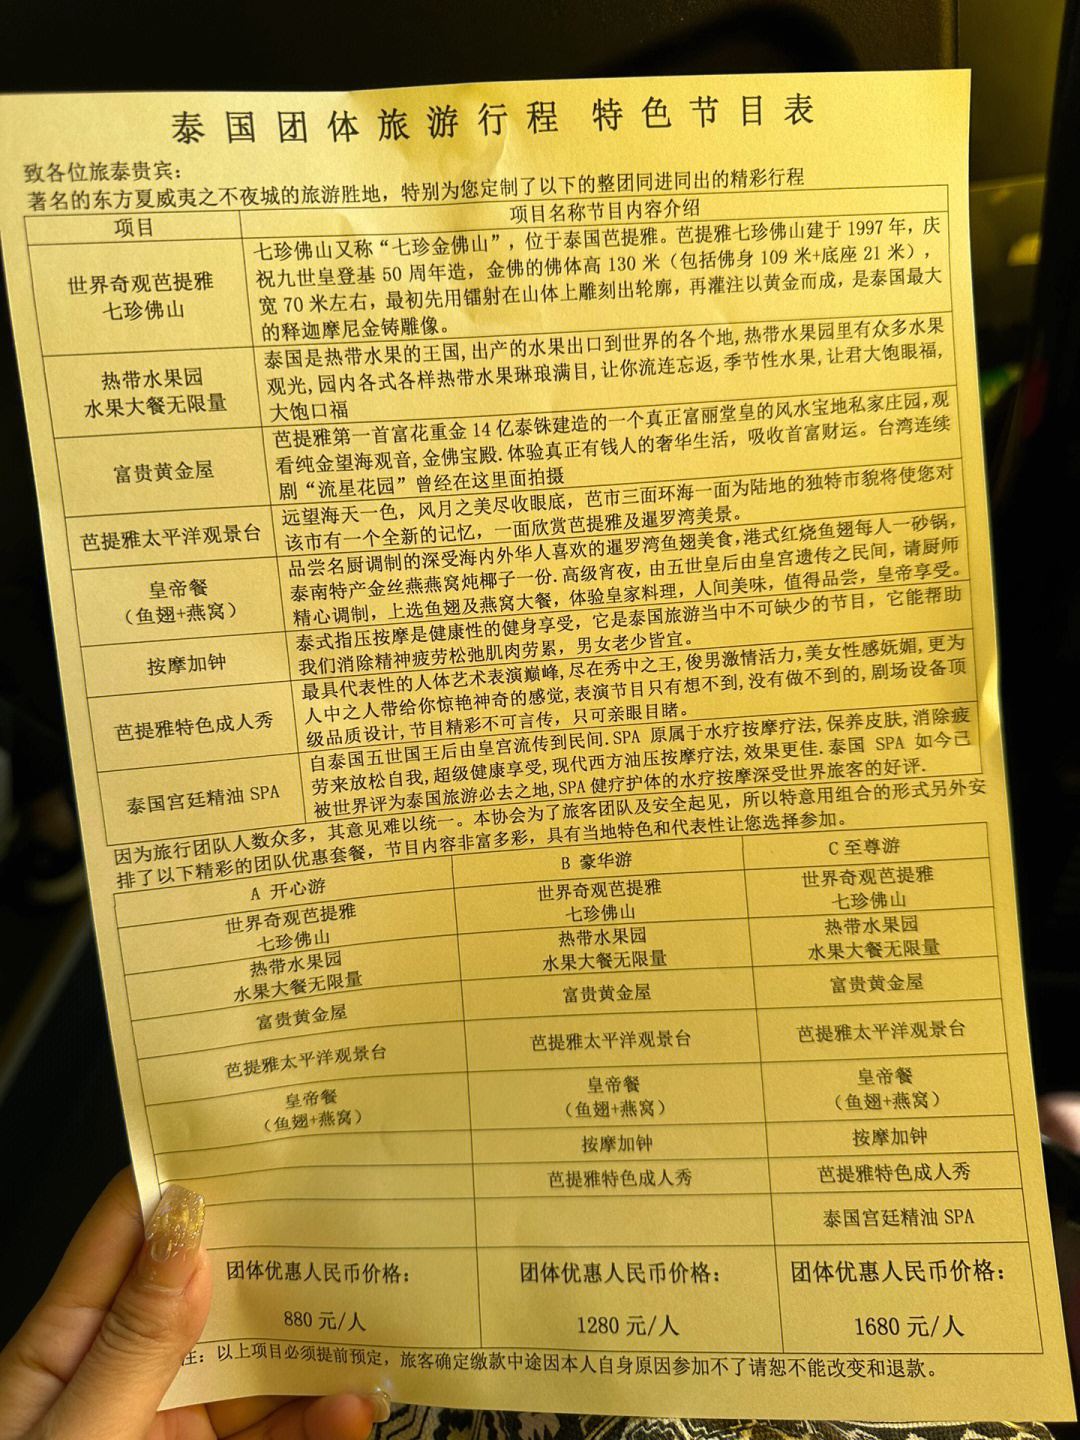 泰国团体旅游行程 特色节目表
致各位旅泰贵宾：
著名的东方夏威夷之不夜城的旅游胜地，特别为您定制了以下的整团同进同出的精彩行程
项目
项目名称节目内容介绍
世界奇观芭提雅
七珍佛山
七珍佛山又称“七珍金佛山”，位于泰国芭提雅。芭提雅七珍佛山建于 1997 年，庆
祝九世皇登基 50 周年造，金佛的佛体高 130 米（包括佛身 109 米+底座 21 米），
宽 70 米左右，最初先用镭射在山体上雕刻出轮廓，再灌注以黄金而成，是泰国最大
的释迦摩尼金铸雕像。
热带水果园
水果大餐无限量
泰国是热带水果的王国,出产的水果出口到世界的各个地,热带水果园里有众多水果
观光,园内各式各样热带水果琳琅满目,让你流连忘返,季节性水果,让君大饱眼福,
大饱口福
富贵黄金屋
芭提雅第一首富花重金 14 亿泰铢建造的一个真正富丽堂皇的风水宝地私家庄园,观
看纯金望海观音,金佛宝殿.体验真正有钱人的奢华生活，吸收首富财运。台湾连续
剧“流星花园”曾经在这里面拍摄
芭提雅太平洋观景台
远望海天一色，风月之美尽收眼底，芭市三面环海一面为陆地的独特市貌将使您对
该市有一个全新的记忆，一面欣赏芭提雅及暹罗湾美景。
皇帝餐
（鱼翅+燕窝）
品尝名厨调制的深受海内外华人喜欢的暹罗湾鱼翅美食,港式红烧鱼翅每人一砂锅，
泰南特产金丝燕燕窝炖椰子一份.高级宵夜，由五世皇后由皇宫遗传之民间，请厨师
精心调制，上选鱼翅及燕窝大餐，体验皇家料理，人间美味，值得品尝，皇帝享受。
按摩加钟
泰式指压按摩是健康性的健身享受，它是泰国旅游当中不可缺少的节目，它能帮助
我们消除精神疲劳松弛肌肉劳累，男女老少皆宜。
芭提雅特色成人秀
最具代表性的人体艺术表演巅峰,尽在秀中之王,俊男激情活力,美女性感妩媚,更为
人中之人带给你惊艳神奇的感觉,表演节目只有想不到,没有做不到的,剧场设备顶
级品质设计,节目精彩不可言传，只可亲眼目睹。
泰国宫廷精油 SPA
自泰国五世国王后由皇宫流传到民间.SPA 原属于水疗按摩疗法,保养皮肤,消除疲
劳来放松自我,超级健康享受,现代西方油压按摩疗法,效果更佳.泰国 SPA 如今已
被世界评为泰国旅游必去之地,SPA 健疗护体的水疗按摩深受世界旅客的好评.
因为旅行团队人数众多，其意见难以统一。本协会为了旅客团队及安全起见，所以特意用组合的形式另外安
排了以下精彩的团队优惠套餐，节目内容非富多彩，具有当地特色和代表性让您选择参加。
A 开心游
B 豪华游
C 至尊游
世界奇观芭提雅
七珍佛山
世界奇观芭提雅
七珍佛山
世界奇观芭提雅
七珍佛山
热带水果园
水果大餐无限量
热带水果园
水果大餐无限量
热带水果园
水果大餐无限量
富贵黄金屋
富贵黄金屋
富贵黄金屋
芭提雅太平洋观景台
芭提雅太平洋观景台
芭提雅太平洋观景台
皇帝餐
（鱼翅+燕窝）
皇帝餐
（鱼翅+燕窝）
皇帝餐
（鱼翅+燕窝）
按摩加钟
按摩加钟
芭提雅特色成人秀
芭提雅特色成人秀
泰国宫廷精油 SPA
团体优惠人民币价格：
880 元/人
团体优惠人民币价格：
1280 元/人
团体优惠人民币价格：
1680 元/人
注：以上项目必须提前预定，旅客确定缴款中途因本人自身原因参加不了请恕不能改变和退款。